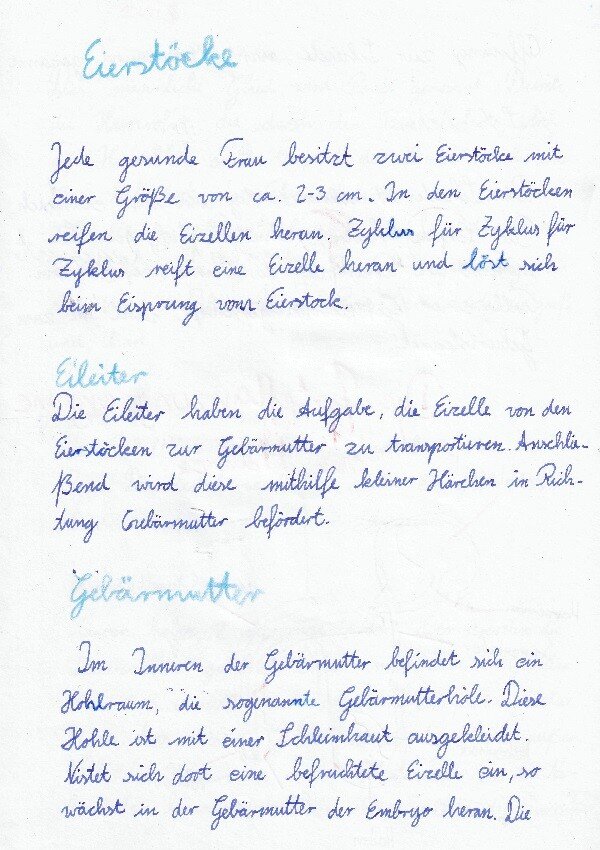 Eierstöcke
Jede gesunde Frau besitzt zwei Eierstöcke mit
einer Größe von ca. 2-3 cm. In den Eierstöcken
reifen die Eizellen heran. Zyklus für Zyklus für
Zyklus reift eine Eizelle heran und löst sich
beim Eisprung vom Eierstock.
Eileiter
Die Eileiter haben die Aufgabe, die Eizelle von den
Eierstöcken zur Gebärmutter zu transportieren. Anschlie-
ßend wird diese mithilfe kleiner Härchen in Rich-
tung Gebärmutter befördert.
Gebärmutter
Im Inneren der Gebärmutter befindet sich ein
Hohlraum, die sogenannte Gebärmutterhöle. Diese
Hohle ist mit einer Schleimhaut ausgekleidet.
Nistet sich dort eine befruchtete Eizelle ein, so
wächst in der Gebärmutter der Embryo heran. Die